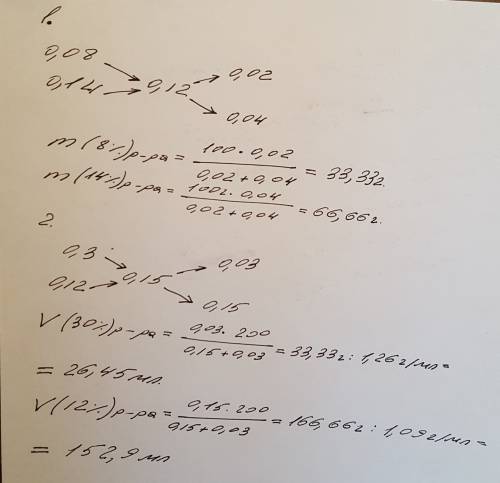 1.
0,08 → 0,12 → 0,02
0,14 → 0,12 → 0,04
m(8%)р-ра = 100 · 0,02 / 0,02 + 0,04 = 33,33г.
m(14%)р-ра = 100г · 0,04 / 0,02 + 0,04 = 66,66г.
2.
0,3 → 0,15 → 0,03
0,12 → 0,15 → 0,15
V(30%)р-ра = 0,03 · 200 / 0,15 + 0,03 = 33,33г : 1,26г/мл =
= 26,45мл.
V(12%)р-ра = 0,15 · 200 / 0,15 + 0,03 = 166,66г : 1,09г/мл =
= 152,9мл